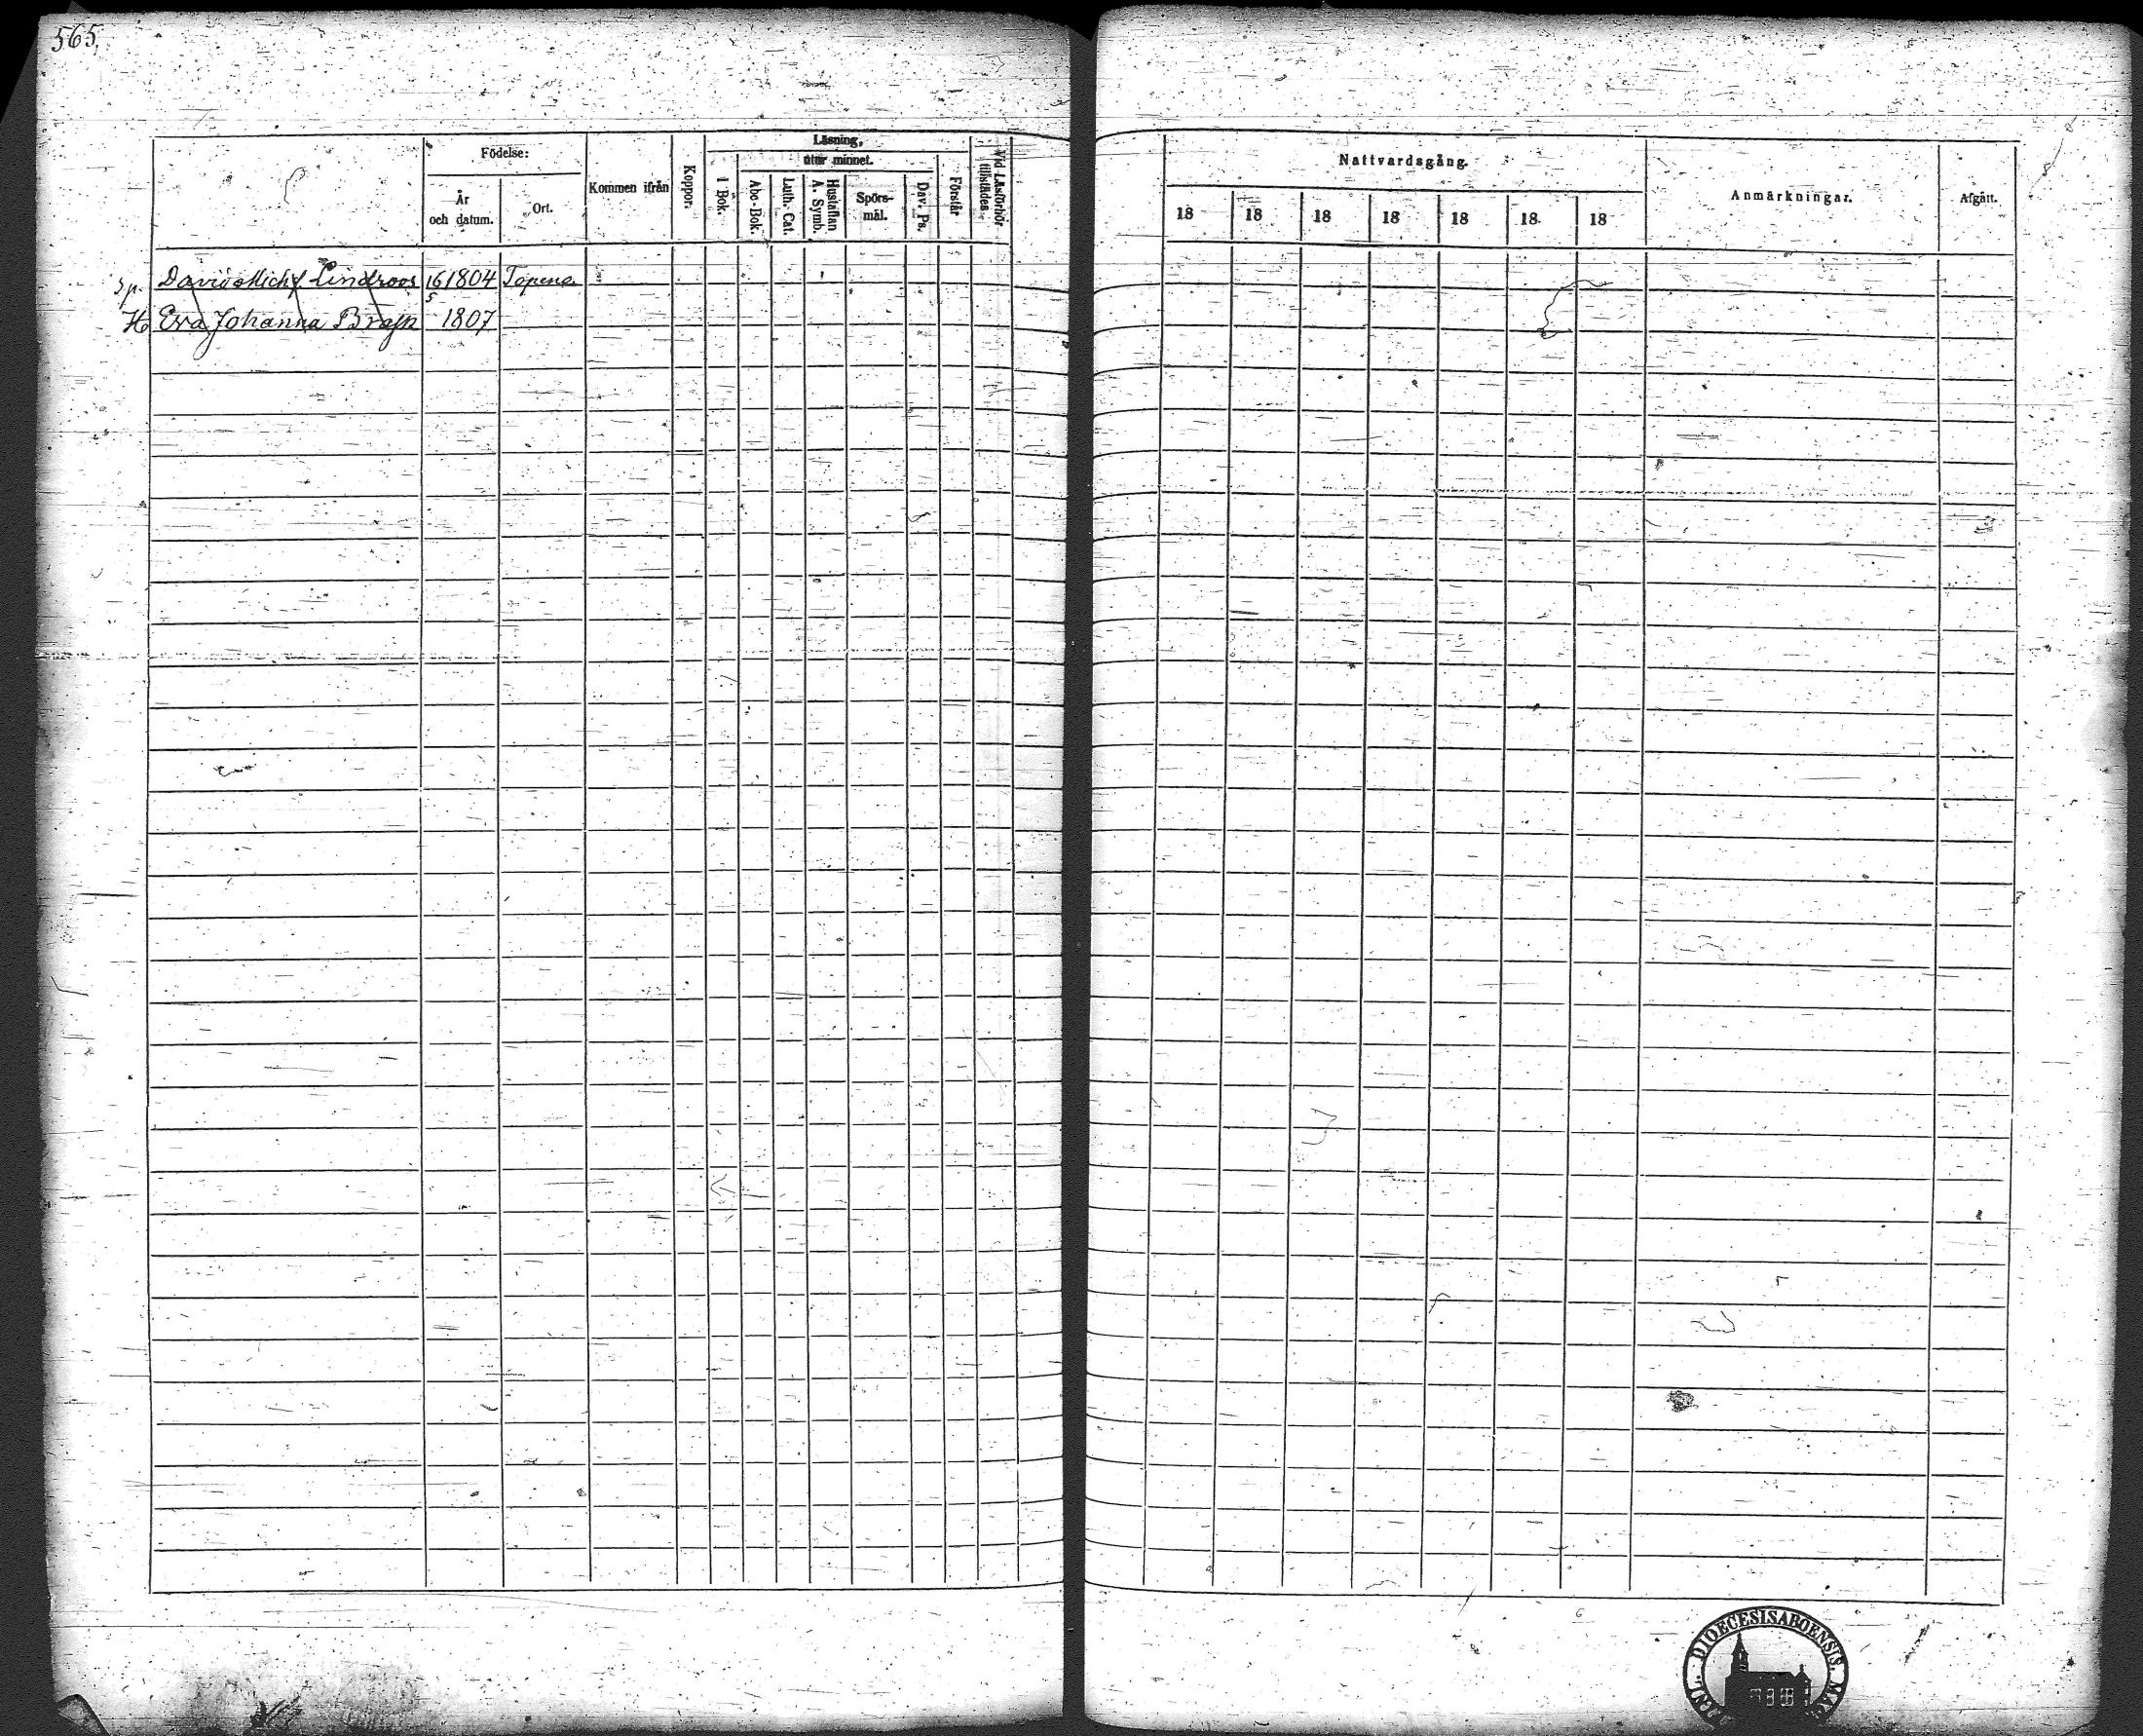 565.
Födelse:
År
och datum.
Ort.
Kommen ifrån
Koppor.
Läsning,
utur minnet.
I Bok.
Abc-Bok.
Luth. Cat.
Hustaflan
A. Symb.
Spörs-
mål.
Dav. Ps.
Förstår
Vid Läsförhör
tillstädes.
Nattvardsgång.
18 18 18 18 18 18 18
Anmärkningar.
Afgått.
David Mich Lindroos 16 1804
5
H Eva Johanna 1807
DIOECESIS ABOENSIS